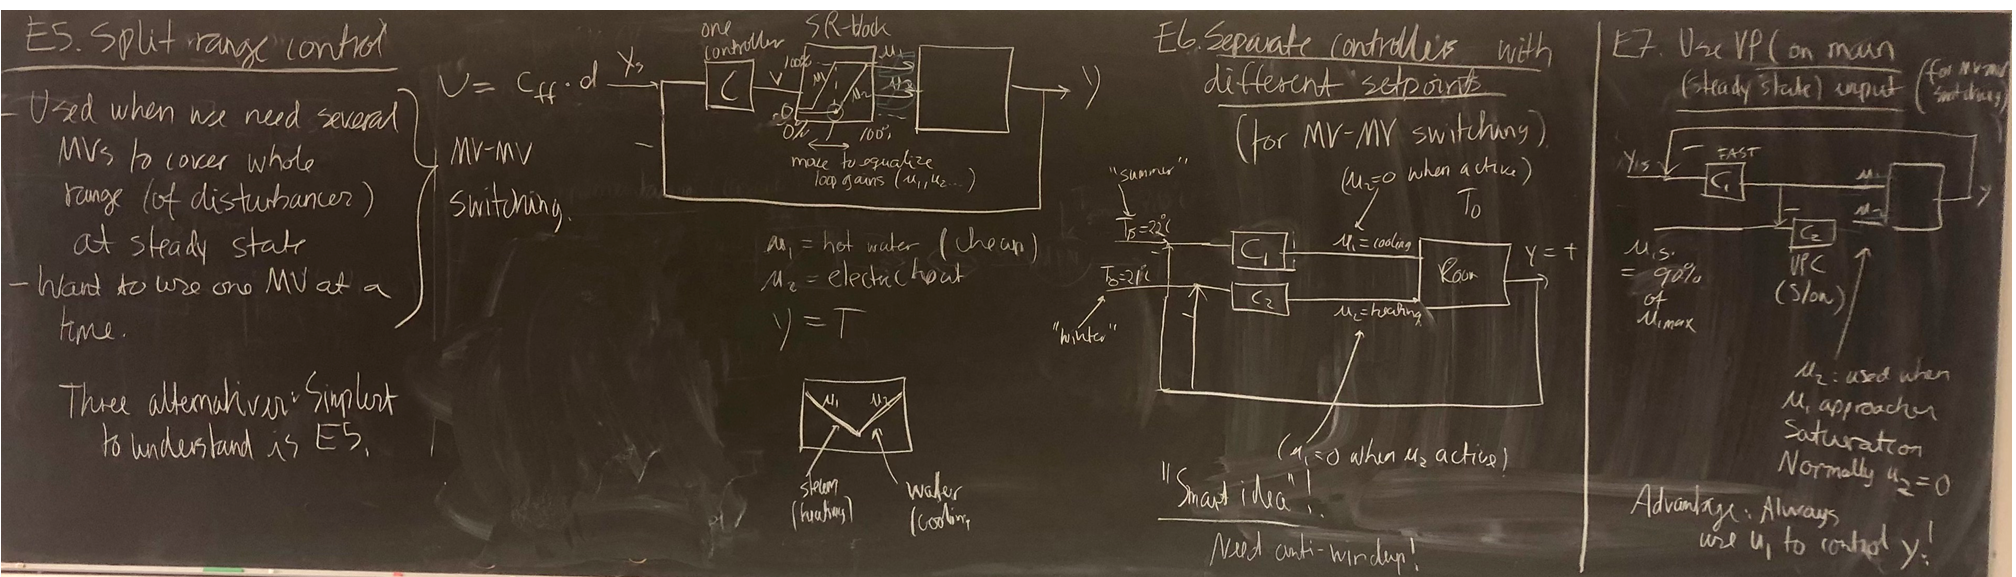 E5. Split range control
- Used when we need several
MVs to cover whole
range (of disturbances)
at steady state
- Want to use one MV at a
time.
MV-MV
switching.
Three alternatives: Simplest
to understand is E5.
U = Cff · d
ys
one
controller
C
v
SR-block
100%
u1
u2
0
0%
100%
u1
u2
y
-
move to equalize
loop gains (u1, u2...)
u1 = hot water (cheap)
u2 = electric heat
y = T
u1
u2
steam
(heating)
water
(cooling
E6. Separate controllers with
different setpoints
(for MV-MV switching)
(u2=0 when active)
T0
"summer"
Ts=22°C
C1
u1=cooling
Room
y = T
Ts=21°C
C2
u2=heating
"winter"
(u1=0 when u2 active)
"Smart idea"!
Need anti-windup!
E7. Use VPC on main
(steady state) input
(for MV-MV
switching)
y1s
-
FAST
C1
u1
u2
y
C2
VPC
(slow)
u1s.
= 90%
of
u1max
u2: used when
u1 approaches
saturation
Normally u2=0
Advantage: Always
use u1 to control y!